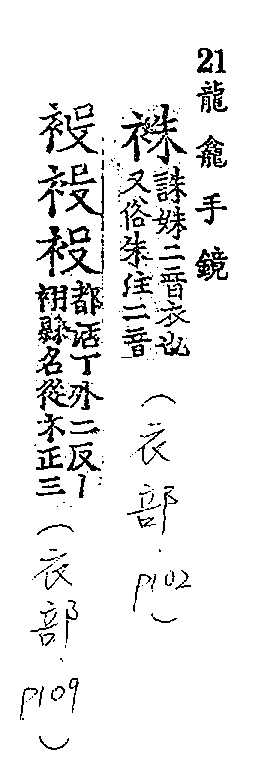 21龍龕手鏡
袾
誅姝二音衣也
又俗朱住二音
(衣部.P102)
都活丁外二反丨
祤縣名從示正三
(衣部.P109)